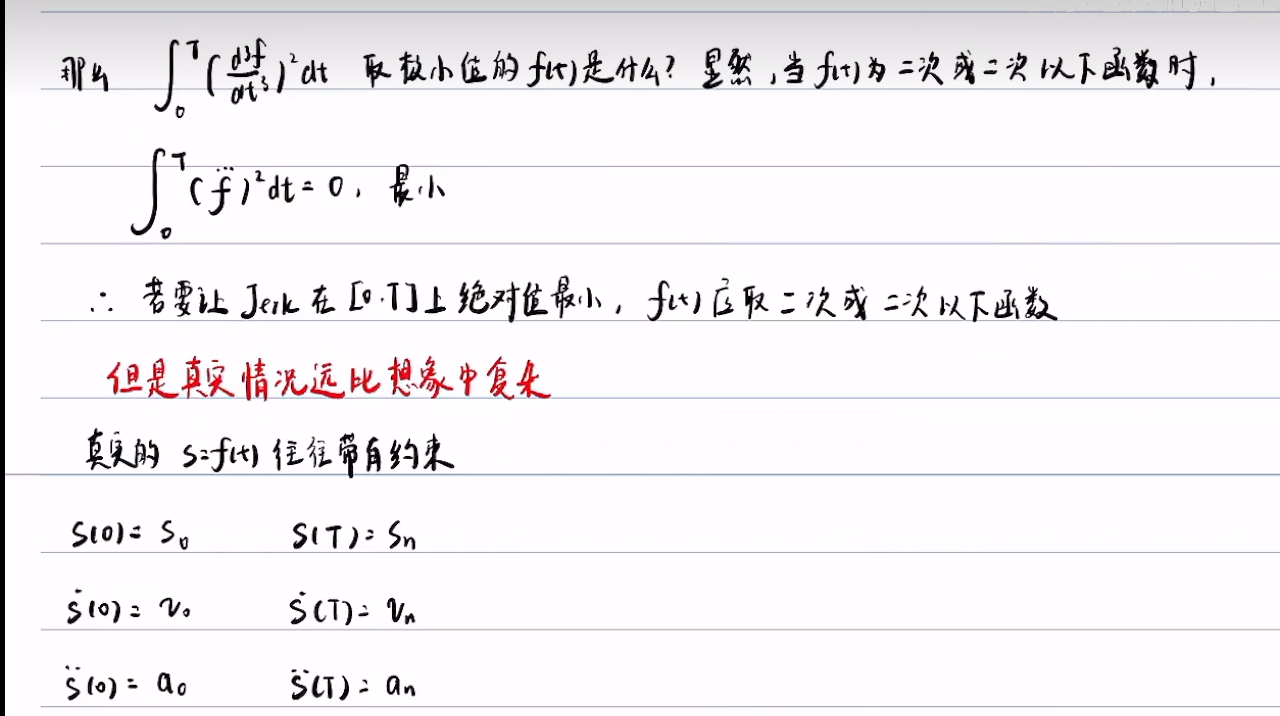 那么 ∫₀ᵀ (d³f/dt³)² dt 取极小值的 f(t) 是什么? 显然,当 f(t) 为二次或二次以下函数时,
∫₀ᵀ (f⃛)² dt = 0, 最小
∴ 若要让 Jerk 在 [0.T] 上绝对值最小, f(t) 应取二次或二次以下函数
但是真实情况远比想象中复杂
真实的 s=f(t) 往往带有约束
S(0) = S₀ S(T) = Sn
ṡ(0) = v₀ Ṡ(T) = vn
s̈(0) = a₀ S̈(T) = an